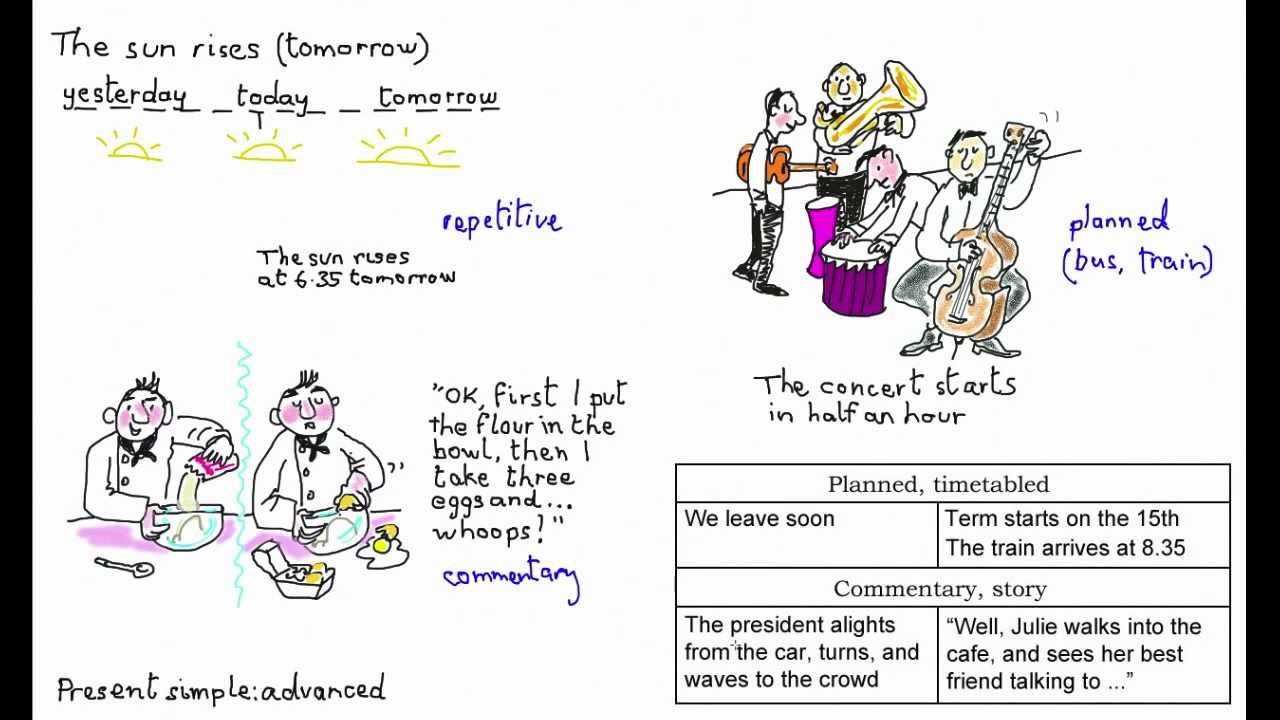 The sun rises (tomorrow)
yesterday today tomorrow
repetitive
The sun rises
at 6.35 tomorrow
planned
(bus, train)
The concert starts
in half an hour
"OK, first I put
the flour in the
bowl, then I
take three
eggs and...
whoops!"
commentary
Planned, timetabled
We leave soon
Term starts on the 15th
The train arrives at 8.35
Commentary, story
The president alights
from the car, turns, and
waves to the crowd
“Well, Julie walks into the
cafe, and sees her best
friend talking to ...”
Present simple: advanced